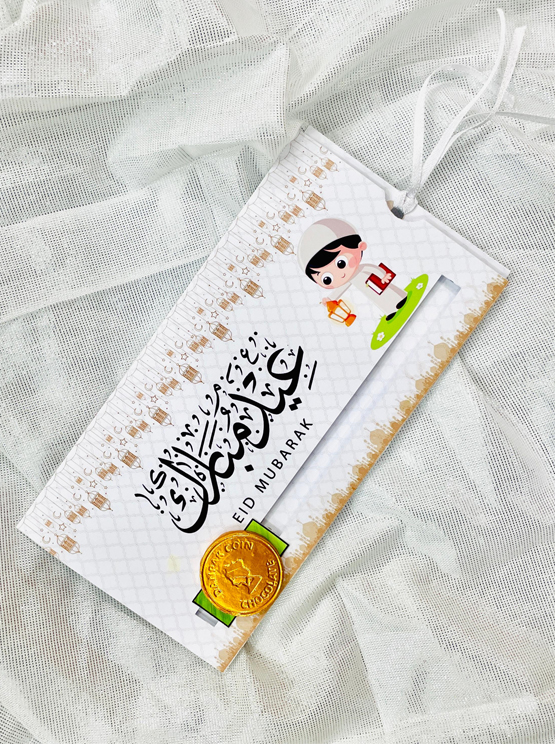 عيد مبارك
EID MUBARAK
COIN
CHOCOLATE